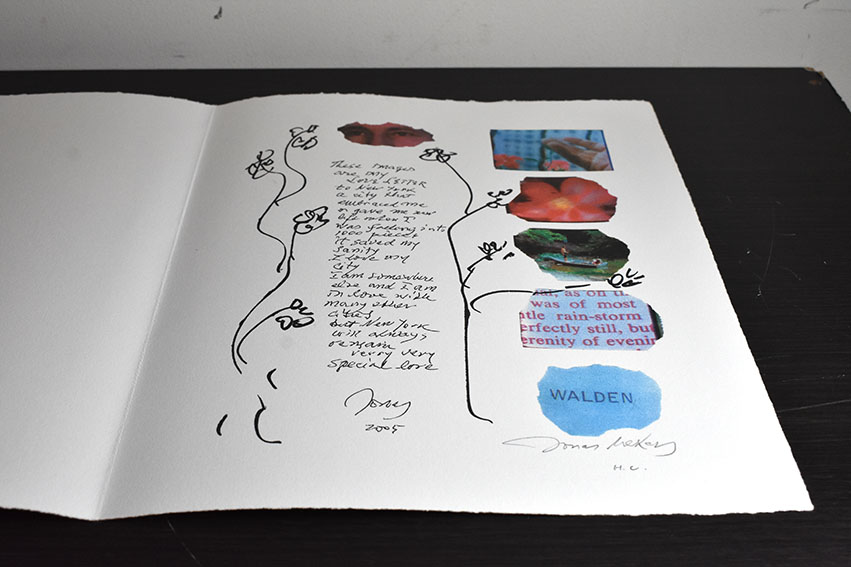 These images
are my
LOVE LETTER
to New York
a city that
embraced me
& gave me new
life when I
was falling into
1000 pieces
it saved my
sanity
I love my
city
I am somewhere
else and I am
in love with
many other
cities
but New York
will always
remain
verry very
special love
Jonas
2005
as on th
was of most
tle rain-storm
erfectly still, but
erenity of evenin
WALDEN
Jonas Mekas
H.C.